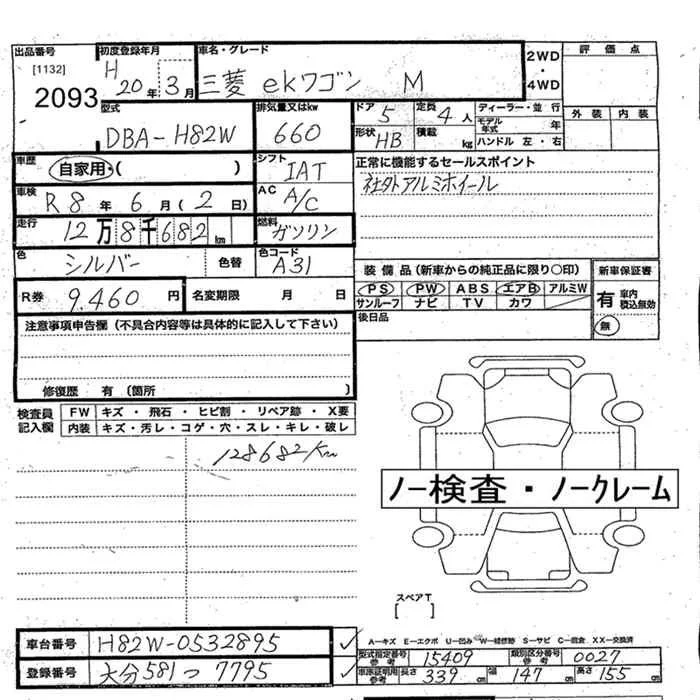 出品番号 初度登録年月 車名・グレード 2WD・4WD 評価点
[1132] H 20年 3月 三菱 ekワゴン M
2093
型式 排気量又はkw ドア 5 定員 4人 ディーラー・並行
DBA-H82W 660 形状 HB 積載 kg モデル年式 年 外装 内装
ハンドル 左・右
車歴 自家用・( ) シフト IAT 正常に機能するセールスポイント
車検 R8年 6月(2日) AC A/C 社外アルミホイール
走行 12万8千682km 燃料 ガソリン
色 シルバー 色替 色コード A31
装備品(新車からの純正品に限り○印) 新車保証書
R券 9.460円 名変期限 月 日 PS PW ABS エアB アルミW 有 車内積込無効
サンルーフ ナビ TV カワ 無
注意事項申告欄(不具合内容等は具体的に記入して下さい) 後日品
修復歴 有 〔箇所 )
検査員記入欄 FW キズ・飛石・ヒビ割・リペア跡・X要
内装 キズ・汚レ・コゲ・穴・スレ・キレ・破レ
128682Km
ノー検査・ノークレーム
スペアT
[ ]
A―キズ E―エクボ U―凹み W―補修跡 S―サビ C―腐食 XX―交換済
車台番号 H82W-0532895
型式指定番号 参考 15409 類別区分番号 参考 0027
登録番号 大分581つ7795
車庫証明用 参考 長さ 339cm 幅 147cm 高さ 155cm